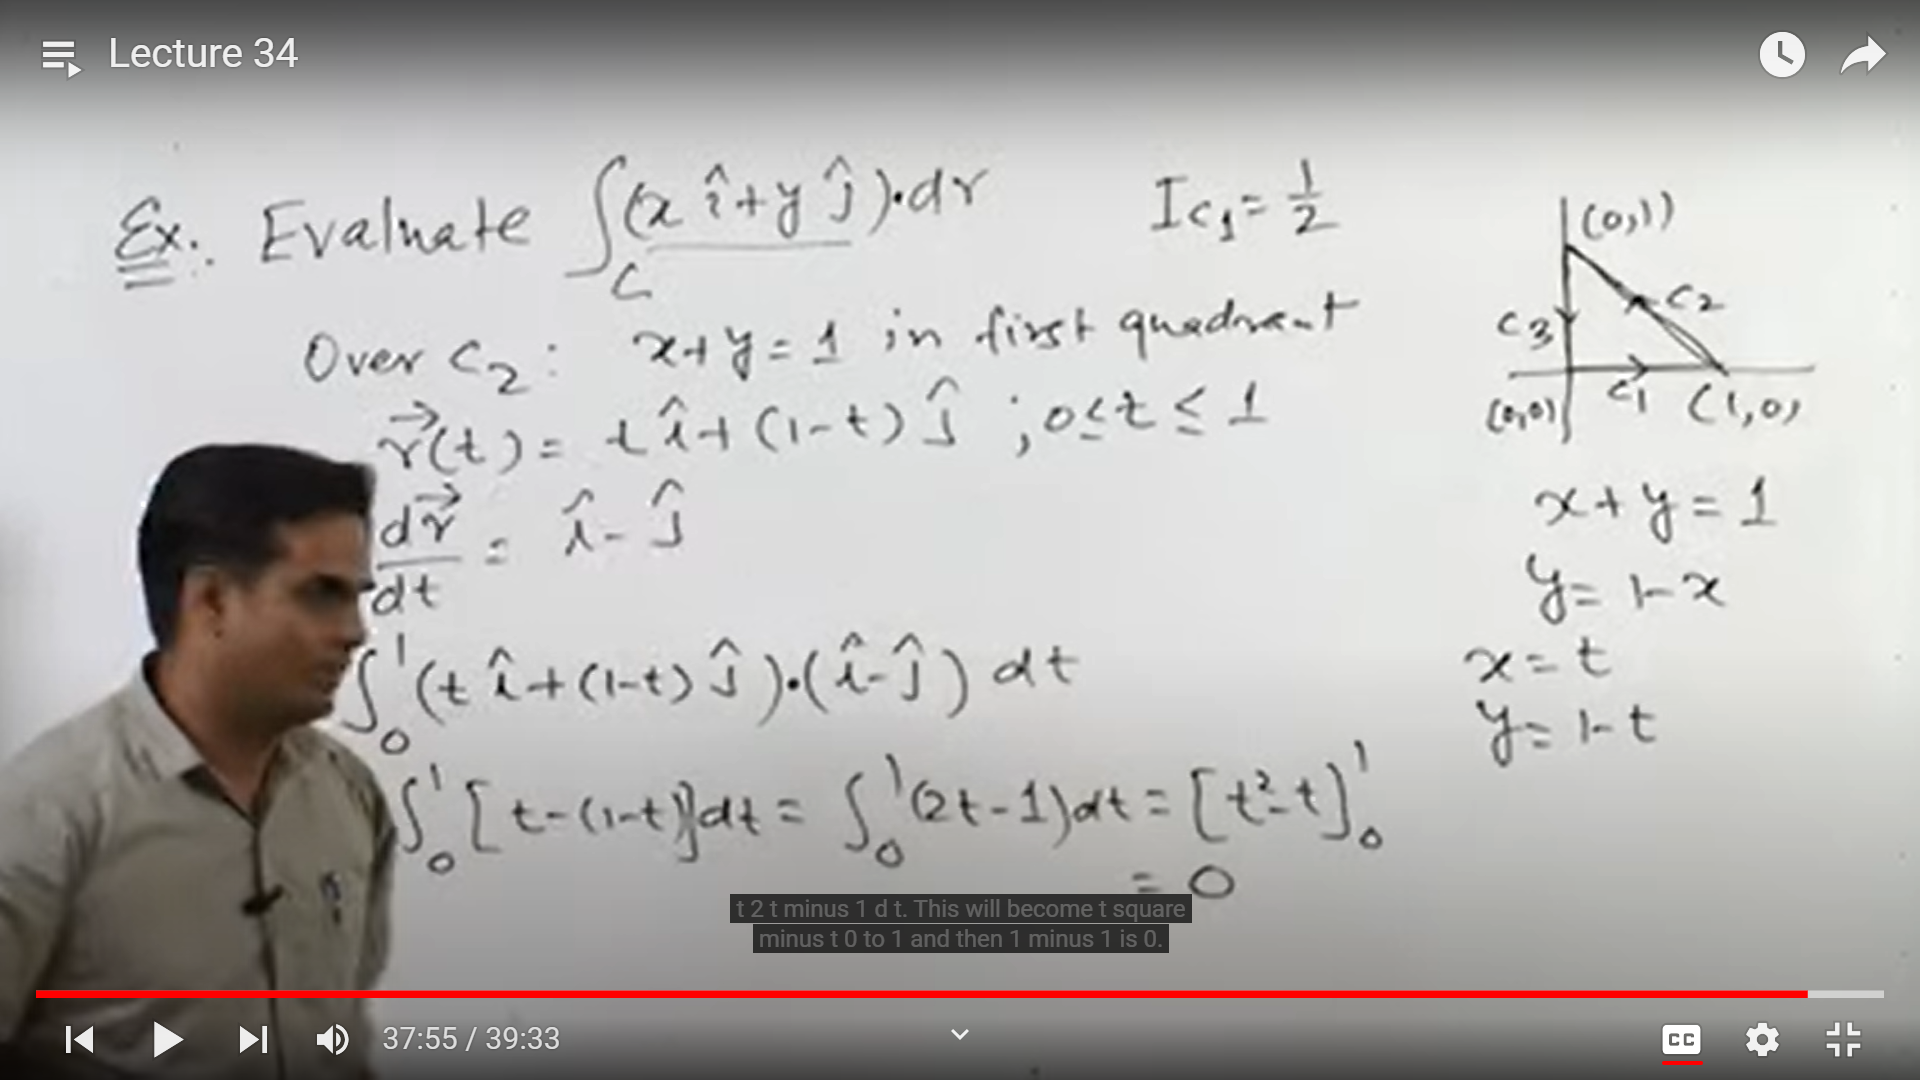 Lecture 34
Ex. Evaluate ∫_C (x î + y ĵ)·dr
I_C1 = 1/2
Over C2 : x+y=1 in first quadrant
r⃗(t) = t î + (1-t) ĵ ; 0≤t≤1
dr⃗/dt = î - ĵ
∫_0^1 (t î + (1-t) ĵ)·(î - ĵ) dt
∫_0^1 [t-(1-t)]dt = ∫_0^1 (2t-1)dt = [t²-t]_0^1
= 0
(0,1)
C2
C3
C1
(0,0)
(1,0)
x+y=1
y=1-x
x=t
y=1-t
t 2 t minus 1 d t. This will become t square
minus t 0 to 1 and then 1 minus 1 is 0.
37:55 / 39:33
CC